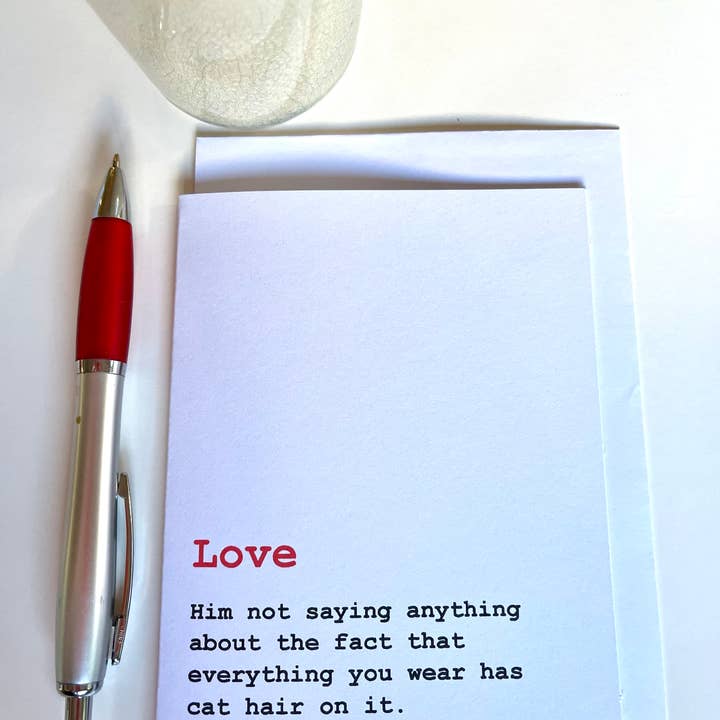 Love
Him not saying anything
about the fact that
everything you wear has
cat hair on it.